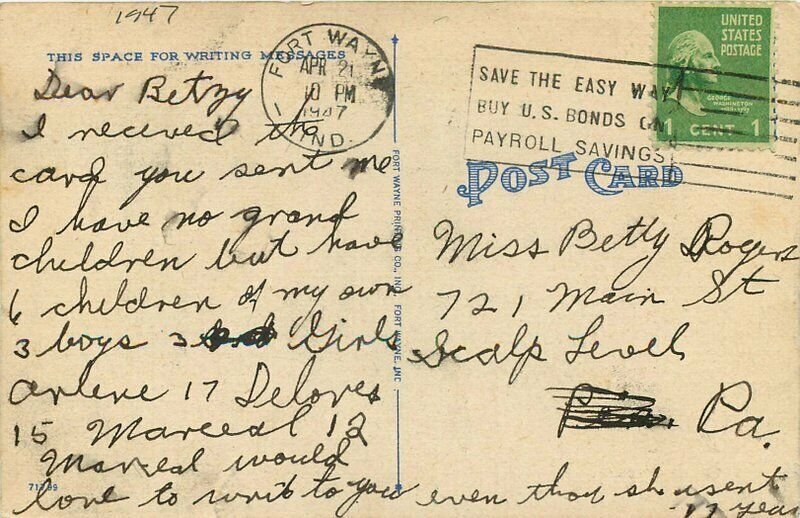 1947
THIS SPACE FOR WRITING MESSAGES
Dear Betzy
I received the
card you sent me
I have no grand
children but have
6 children of my own
3 boys 3 Girls
Arlene 17 Delores
15 Marceal 12
Marceal would
love to writ to you even thou sh
17 year
FORT WAYNE
APR 21
10 PM
1947
IND.
SAVE THE EASY WAY
BUY U.S. BONDS ON
PAYROLL SAVINGS
UNITED
STATES
POSTAGE
GEORGE
WASHINGTON
1 CENT 1
POST CARD
Miss Betty Rogers
721 Main St
Scalp Level
Pa.
FORT WAYNE PRINTING CO., INC. FORT WAYNE, IND.